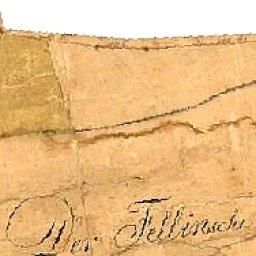 Der Fellinsche